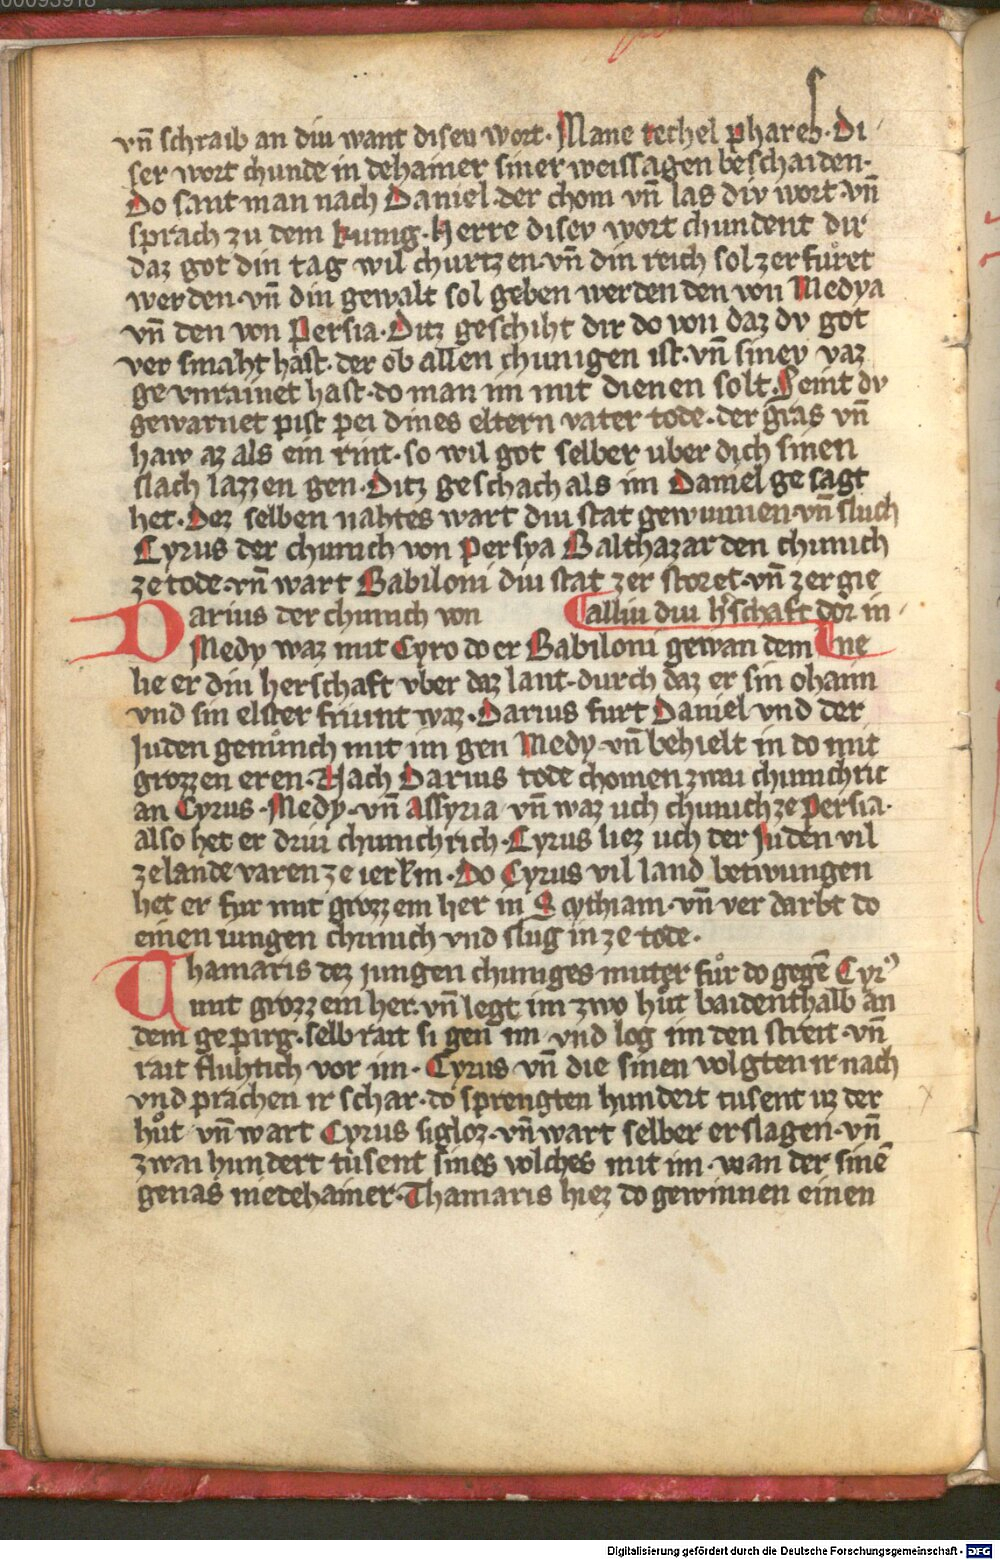 vn̄ schraib an diu want diseu wort. Mane techel phares. Di
ser wort chunde in dehainer siner weissagen beschaiden.
Do sant man nach Daniel. der chom vn̄ las div wort. vn̄
sprach zu dem kunig. Herre disev wort chundent dir
daz got din tag wil churtzen. vn̄ din reich sol zerfuͦret
werden. vn̄ din gewalt sol geben werden den von Medya
vn̄ den von Persia. Ditz geschiht dir do von daz dv got
versmaht hast. der ob allen chunigen ist. vn̄ sinev vaz
gevnrainet hast. do man im mit dienen solt. Seint dv
gewarnet pist pei dines eltern vater tode. der gras vn̄
haw az als ein rint. so wil got selber uber dich sinen
slach lazzen gen. Ditz geschach als im Daniel gesagt
het. Dez selben nahtes wart diu stat gewunnen. vn̄ sluch
Cyrus der chunich von Persya Balthazar den chunich
ze tode. vn̄ wart Babiloni diu stat zerstoret. vn̄ zergie
Darius der chunich von alliu diu h̄schaft dor in.
Medy waz mit Cyro do er Babiloni gewan dem ne
lie er diu herschaft vber daz lant. durch daz er sin ohaim
vnd sin elster friunt waz. Darius furt Daniel vnd der
Juden genuͦnch mit im gen Medy. vn̄ behielt in do mit
grozzen eren. Nach Darius tode chomen zwai chunchric
an Cyrus. Medy. vn̄ Assyria vn̄ waz uch chunich ze Persia.
also het er driu chunchrich. Cyrus liez uch der Juden vil
ze lande varen ze ierlm̄. Do Cyrus vil land betwungen
het er fur mit grozzem her in Scythiam. vn̄ verdarbt do
einen iungen chunich vnd slug in ze tode.
Thamaris dez jungen chuniges muter fuͦr do gegē Cyrꝰ
mit grozzem her. vn̄ legt im zwo huͦt baidenthalb an
dem gepirg. selb rait si gen im vnd log im den streit. vn̄
rait fluhtich vor im. Cyrus vn̄ die sinen volgten ir nach
vnd prachen ir schar. do sprengten hundert tusent uz der
huͦt vn̄ wart Cyrus sigloz. vn̄ wart selber erslagen. vn̄
zwai hundert tusent sines volches mit im. wan der sinē
genas nie dehainer. Thamaris hiez do gewinnen einen
Digitalisierung gefördert durch die Deutsche Forschungsgemeinschaft - DFG